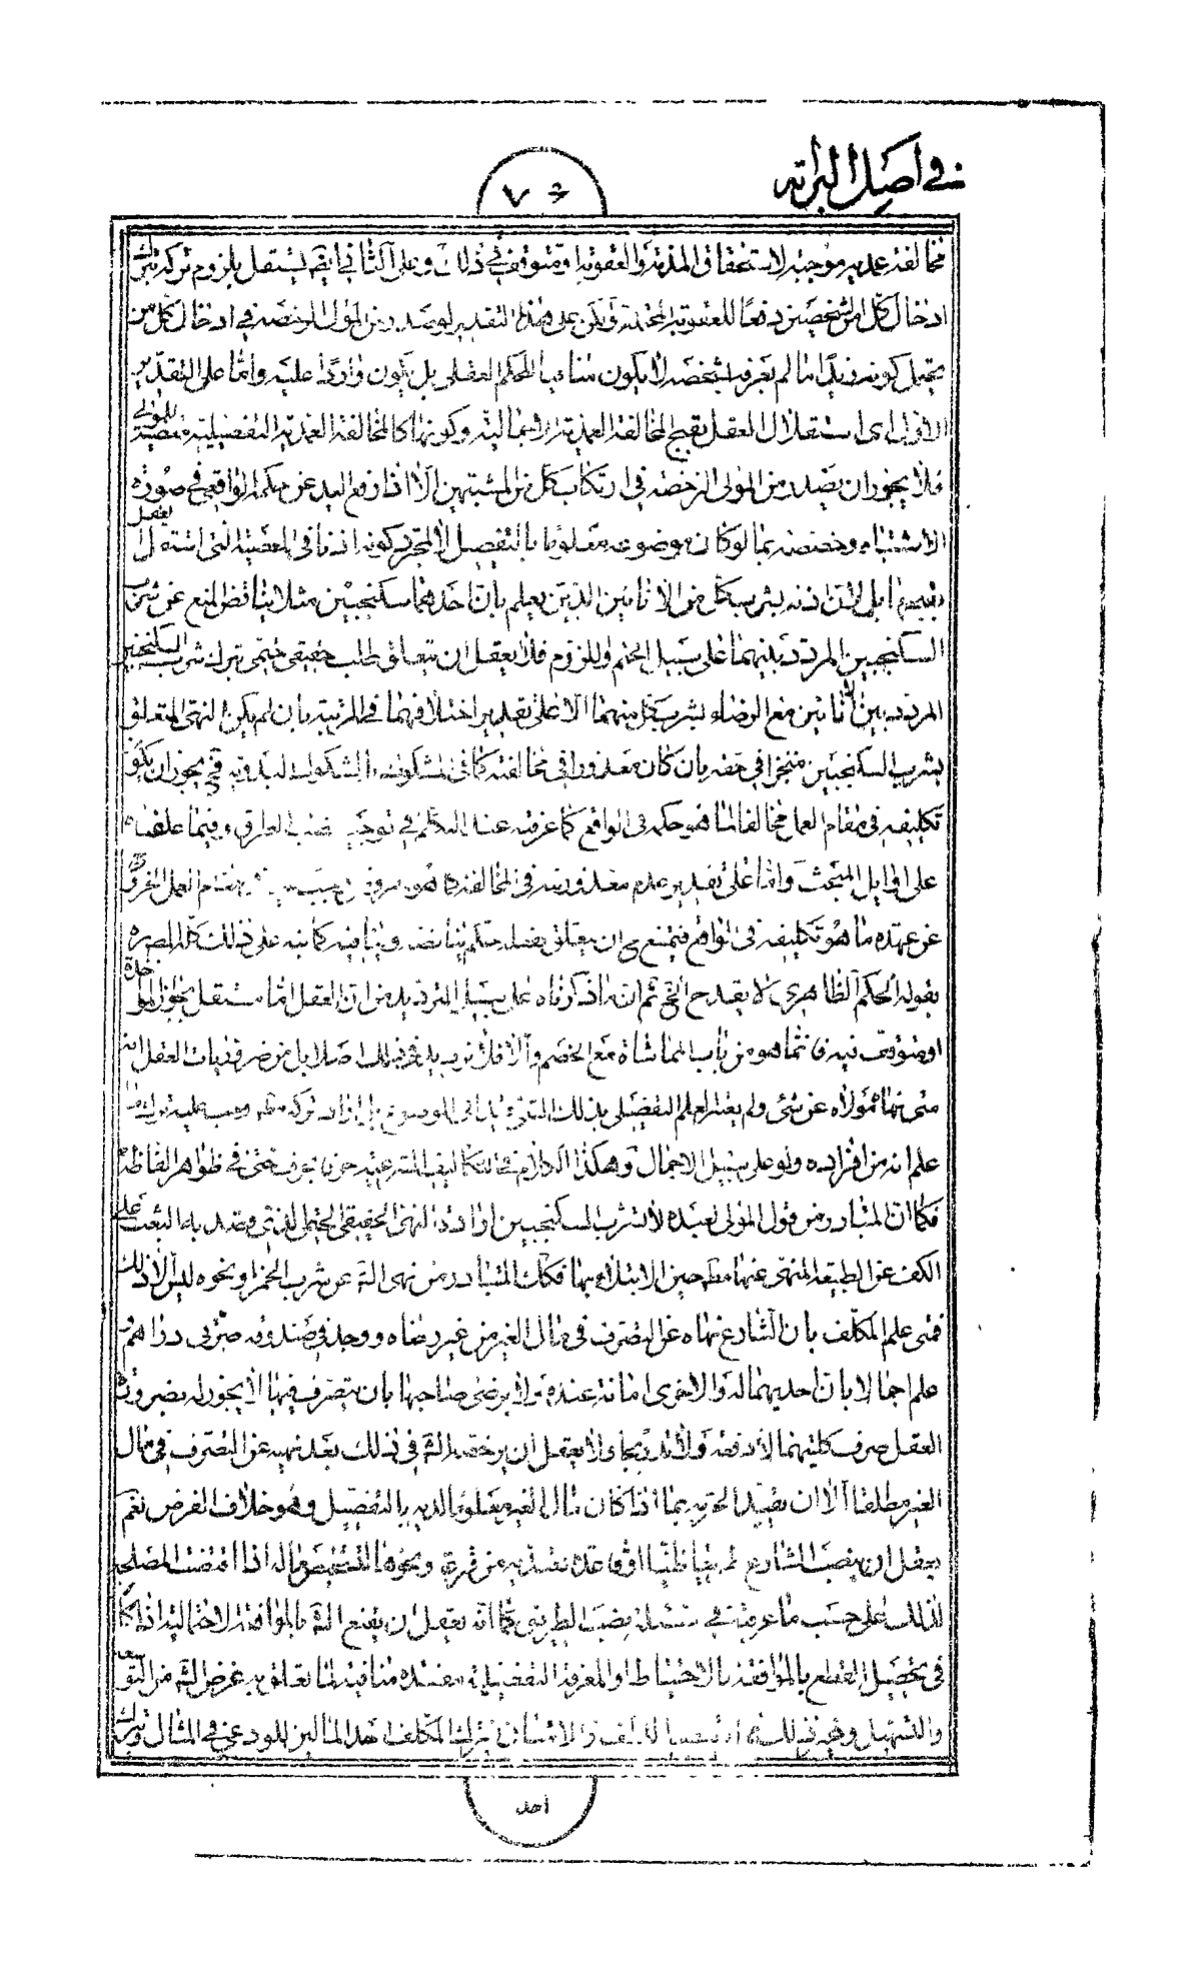 في اصل البرائة
مخالفته عمدية موجبة لاستحقاق المذمة والعقوبة او متوقف في ذلك وعلى الثاني ايضا يستقل بلزوم ترك
ادخال كل من الشخصين دفعا للعقوبة المحتملة ولكن على هذا التقدير لو صدر من المولى الرخصة في ادخال كل من
يحتمل كونه زيدا ما لم يعرفه بشخصه لا يكون منافيا للحكم العقلي بل يكون واردا عليه واما على التقدير
الاول اى استقلال العقل بقبح المخالفة العمدية الاجمالية وكونها كالمخالفة العمدية التفصيلية معصية للمولى
فلا يجوز ان يصدر من المولى الرخصة في ارتكاب كل من المشتبهين الا اذا رفع اليد عن حكمه الواقعي في صورة
الاشتباه وخصصه بما لو كان موضوعه معلوما بالتفصيل لا لمجرد كونه اذنا في المعصية التي استقل العقل
بقبحها بل لان اذنه بشرب كل من الانائين الذين يعلم بان احدهما سكنجبين مثلا يناقض المنع عن شرب
السكنجبين المردد بينهما على سبيل الحتم واللزوم فلا يعقل ان يتعلق طلب حقيقي حتمي بترك شرب السكنجبين
المردد بين الانائين مع الرضاء بشرب كل منهما الا على تقدير اختلافهما في المرتبة بان لم يكن النهي المتعلق
بشرب السكنجبين منجزا في حقه بان كان معذورا في مخالفته كما في الشكوك البدوية فح يجوز ان يكون
تكليفه في مقام العمل مخالفا لما هو حكمه في الواقع كما عرفته عند التكلم في توجيه نصب الطرق وفيما علقناه
على اوايل المبحث واما على تقدير عدم معذوريته في المخالفة كما هو المفروض مقام العمل الخروج
عن عهدة ما هو تكليفه في الواقع فيمتنع ح ان يتعلق بفعله حكم يناقضه وينافيه كما نبه على ذلك كله المصره
بقوله الحكم الظاهري لا يقدح الخ ثم ان ما ذكرناه على سبيل الترديد من ان العقل اما مستقل بجواز المؤاخذة
او متوقف فيه فانما هو من باب المماشاة مع الخصم والا فلا نرتاب في ذلك اصلا بل من ضروريات العقل انه
متى نهاه مولاه عن شئ ولم يعتبر العلم التفصيلي بذلك الشئ
علم انه من افراده ولو على سبيل الاجمال وهكذا الكلام في التكاليف الشرعية ظواهر الفاظه
فكما ان المتبادر من قول المولى لعبده لا تشرب السكنجبين ارادة النهي الحقيقي الحتمي الذي يقصد به البعث على
الكف عن الطبيعة المنهي عنها مط حين الابتلاء بها فكك المتبادر من نهى الشه عن شرب الخمر ونحوه ليس الا ذلك
فمتى علم المكلف بان الشارع نهاه عن التصرف في مال الغير من غير رضاه ووجد في صندوقه صرتى دراهم و
علم اجمالا بان احديهما له والاخرى امانة عنده ولا يرضى صاحبها بان يتصرف فيها لا يجوز له بضرورة
العقل صرف كلتيهما لا دفعة ولا تدريجا ولا يعقل ان يرخصه الشه في ذلك بعد نهيه عن التصرف في مال
الغير مطلقا الا ان يقيد الحرمة بما اذا كان مال الغير معلوما لديه بالتفصيل وهو خلاف الفرض نعم
يعقل ان ينصب الشارع طريقا ظنيا او قاعدة تعبدية من قرعة ونحوها لتشخيص ماله اذا اقتضت المصلحة
لذلك على حسب ما عرفت في مسئلة نصب الطريق كما انه يعقل ان يقنع الشه بالموافقة الاحتمالية اذا كان
في تحصيل القطع بالموافقة بالاحتياط او المعرفة التفصيلية مفسدة منافية لما تعلق به غرض الشه من التوسعة
والتسهيل ونحو ذلك المكلف احد المالين للودعي في المثال وترك
احد